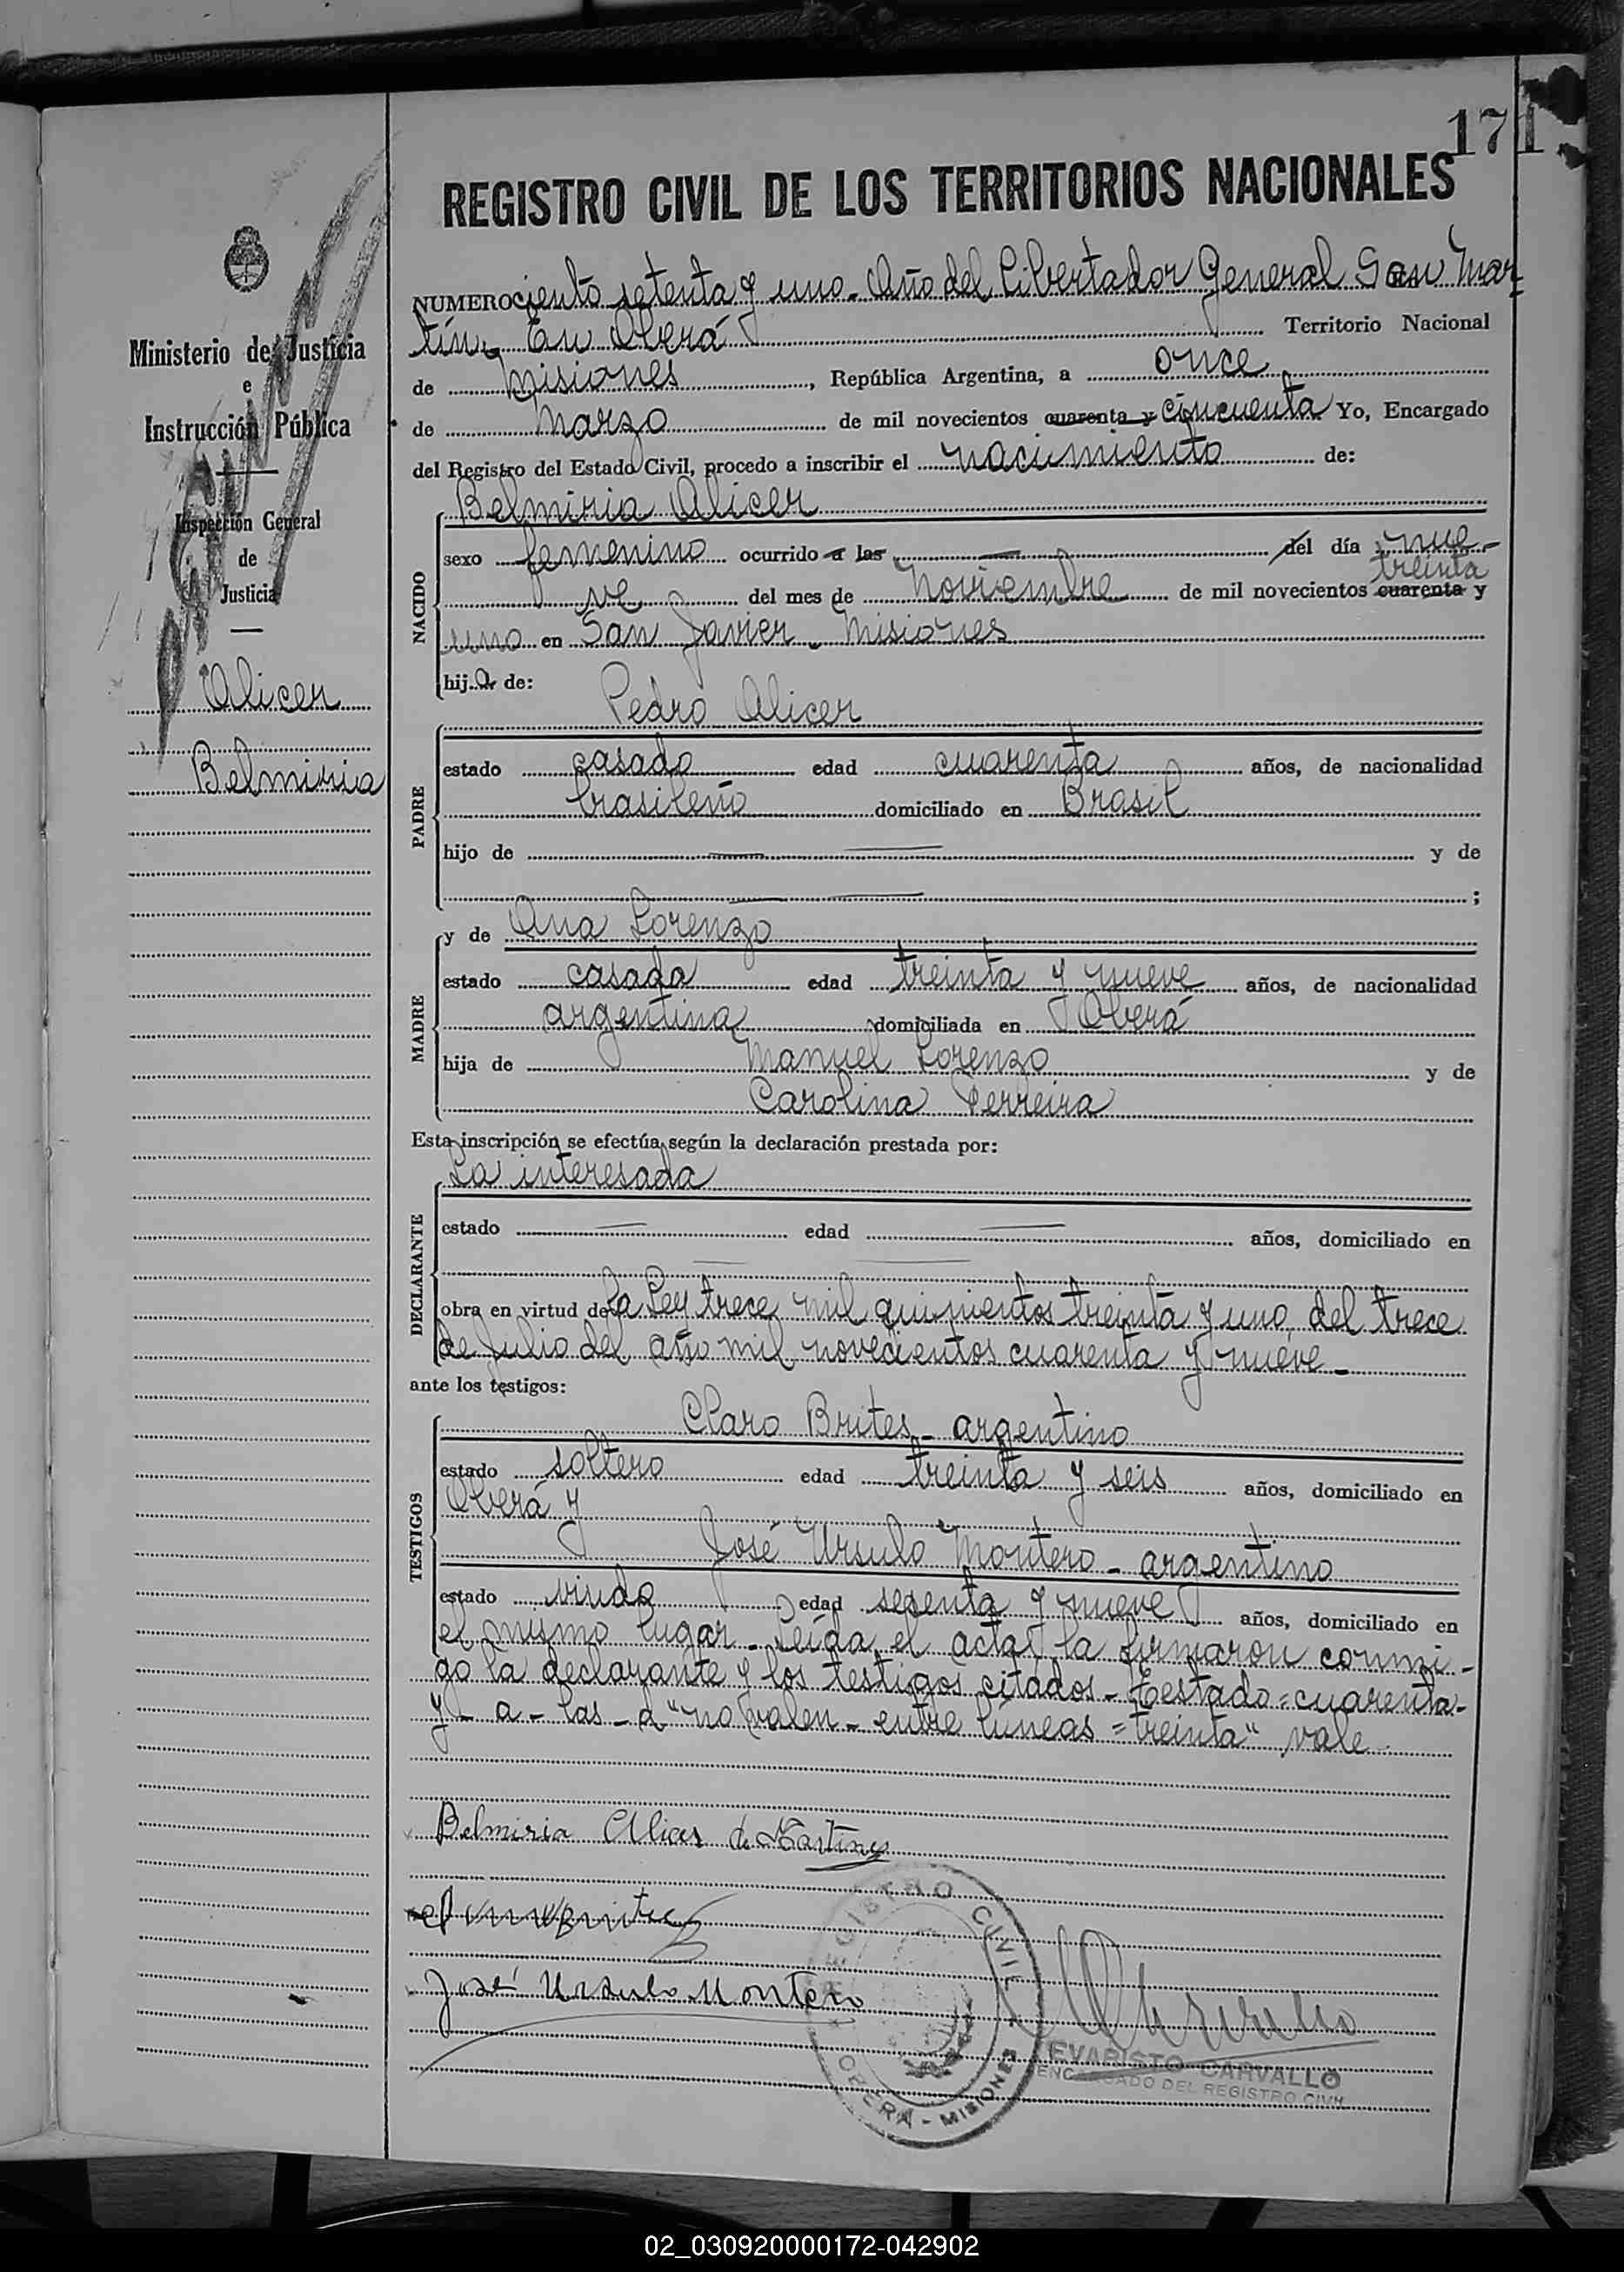 171
REGISTRO CIVIL DE LOS TERRITORIOS NACIONALES
NUMERO ciento setenta y uno. Año del Libertador General San Mar-
tín. En Oberá Territorio Nacional
de Misiones, República Argentina, a once
de Marzo de mil novecientos cuarenta y cincuenta Yo, Encargado
del Registro del Estado Civil, procedo a inscribir el nacimiento de:
Belmiria Alicer
NACIDO
sexo femenino ocurrido a las — del día nue-
treinta
ve del mes de Noviembre de mil novecientos cuarenta y
uno en San Javier - Misiones
hija de:
Pedro Alicer
PADRE
estado casado edad cuarenta años, de nacionalidad
brasileño domiciliado en Brasil
hijo de — — y de
— — ;
y de Ana Lorenzo
MADRE
estado casada edad treinta y nueve años, de nacionalidad
argentina domiciliada en Oberá
hija de Manuel Lorenzo y de
Carolina Ferreira
Esta inscripción se efectúa según la declaración prestada por:
La interesada
DECLARANTE
estado — edad — años, domiciliado en
— —
obra en virtud de la Ley trece mil quinientos treinta y uno del trece
de Julio del año mil novecientos cuarenta y nueve -
ante los testigos:
Claro Brites - argentino
TESTIGOS
estado soltero edad treinta y seis años, domiciliado en
Oberá y
José Ursulo Montero - argentino
estado viudo edad sesenta y nueve años, domiciliado en
el mismo lugar. Leída el acta, la firmaron conmi-
go la declarante y los testigos citados - Testado = cuarenta -
y - a - las - d" no valen - entre líneas = treinta" vale
Belmiria Alicer de Martinez
José Ursulo Montero
REGISTRO CIVIL
OBERÁ - MISIONES
EVARISTO CARVALLO
ENCARGADO DEL REGISTRO CIVIL
Ministerio de Justicia
e
Instrucción Pública
Inspección General
de
Justicia
Alicer
Belmiria
02_030920000172-042902